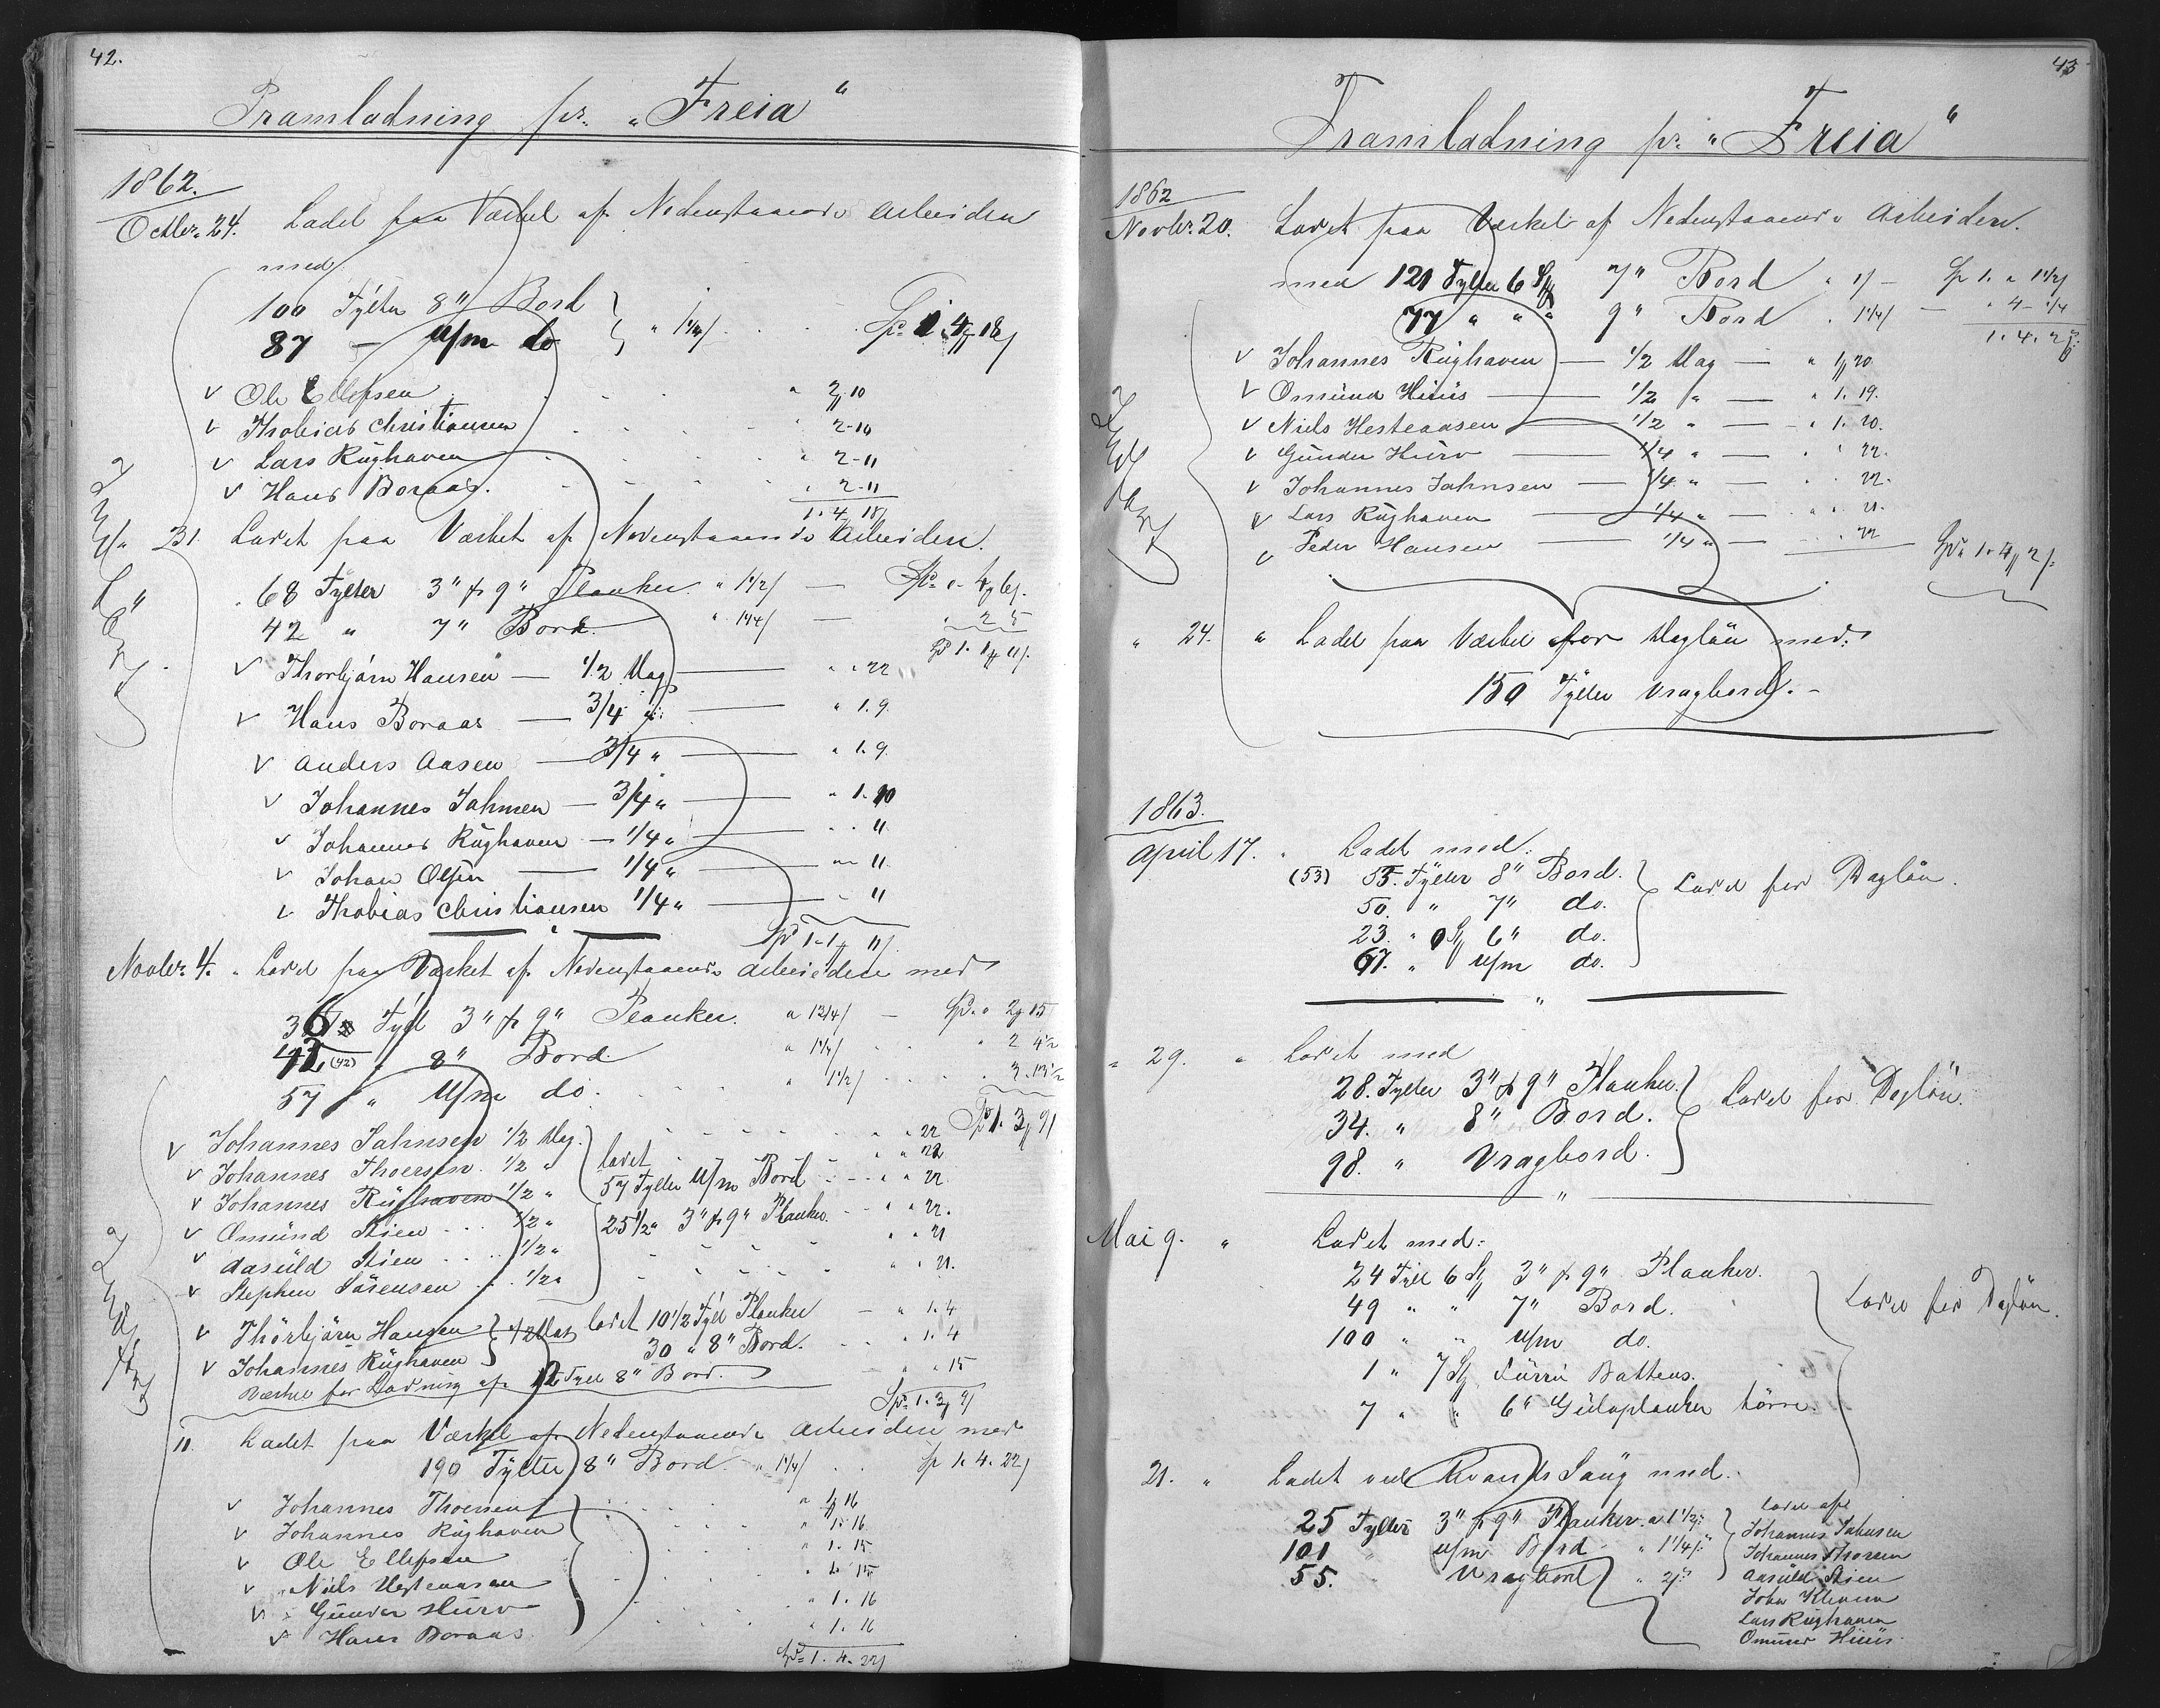 42.
Pramladning pr. "Freia"
1862.
Octbr. 24. Ladet paa Værket af Nedenstaaende Arbeidere
med
100 Tylter 8" Bord
87 — U/m do " 1 1/4 Sp 1. 4 18
v Ole Ellefsen " 2. 10
v Thobias Christiansen " 2-10
v Lars Rüghaven " 2-11
v Hans Boraas. " 2-11
1. 4 18
31. Ladet paa Værket af Nedenstaaende Arbeidere.
68 Tylter 3" & 9" Planker. " 1 1/2 — Sp " 4 6
42 " 7" Bord. " 1 1/4 — " 2 5
Sp 1. 1 11
v Thorbjörn Hansen — 1/2 Dag — " " 22
v Hans Boraas — 3/4 " — " 1. 9.
v Anders Aasen — 3/4 " — " 1. 9.
v Johannes Jahnsen — 3/4 " — " 1. 10
v Johannes Rüghaven — 1/4 " — " " 11.
v Johan Olsen — 1/4 " — " " 11.
v Thobias Christiansen 1/4 " — " 11
Sp 1-1 11
Novbr. 4. " Ladet paa Værket af Nedenstaaende Arbeidere med
36 Tylt 3" & 9" Planker. a — Sp. " 2 15
42 (42) " 8" Bord. a 1 1/4 " 2 4 1/2
57 " U/m do. " 1 1/2 " 3. 13 1/2
Sp 1. 3 9
v Johannes Jahnsen 1/2 Dag. " " 22
v Johannes Thoersen. 1/2 " ladet " " 22
v Johannes Rüghaven 1/2 " 57 Tylter U/m Bord " " 22
v Omünd Stien 1/2 " 25 1/2 " 3" & 9" Planker. " " 22.
v Aasüld Stien 1/2 " " " 21
v Stephen Sörensen 1/2 " " " 21.
v Thörbjörn Hansen 1/2 Dag ladet 10 1/2 Tylt Planker — " 1. 4
v Johannes Rüghaven 30 " 8" Bord. " 1. 4
Værket for Ladning af 12 Tylt 8" Bord. " " 15
Sp. 1. 3 9
11. Ladet paa Værket af Nedenstaaende Arbeidere med
190 Tylter 8" Bord. " 1 1/4 Sp 1. 4. 22
v Johannes Thoersen " 1 16
v Johannes Rüghaven " 1. 16
v Ole Ellefsen " 1. 15
v Niels Hesteaasen " 1. 15
v Günder Hürv " 1. 16
v Hans Boraas " 1. 16
Sp. 1. 4. 22
43
Pramladning pr. "Freia"
1862
Novbr. 20. Ladet paa Værket af Nedenstaaende Arbeidere.
med 121 Tylter 6 St 7" Bord " 1 — Sp 1. " 1 1/2
77 " " " 9" Bord " 1 1/4 —
1. 4. 2
v Johannes Rüghaven — 1/2 Dag — " 1 20
v Omünd Hüüs — 1/2 " — " 1. 19.
v Niels Hesteaasen — 1/2 " — " 1. 20.
v Günder Hürv — 1/4 " — " " 22.
v Johannes Jahnsen — 1/4 " — " " 22.
v Lars Rüghaven — 1/4 " — " " 21.
v Peder Hansen — 1/4 " — " 22 Sp. 1. 4 2
" 24. " Ladet paa Værket for Daglön med:
150 Tylter Vragbord. -
1863.
April 17. " Ladet med:
(53) 55. Tylter 8" Bord. Ladet for Daglön.
50. " 7" do.
23. " 9 St 6" do.
67. " U/m do.
"
" 29. " Ladet med
28. Tylter 3" & 9" Planker. Ladet for Daglön.
34. " 8" Bord.
98. " Vragbord.
"
Mai 9. " Ladet med:
24 Tylt 6 St 3" & 9" Planker. Ladet for Daglön.
49 " " 7" Bord.
100 " " U/m do.
1 " 7 St Fürrü Battens.
7 " " 6" Gülvplanker törre.
21. " Ladet ved Kvands Saüg med.
25 Tylter 3" & 9" Planker. a 1 1/2 Ladet af
101 " U/m Bord " 1 1/4 Johannes Jahnsen
55. " Vragbord " 2 Johannes Thorsen
Aasüld Stien
John Kleven
Lars Rüghaven
Omünd Hüüs.